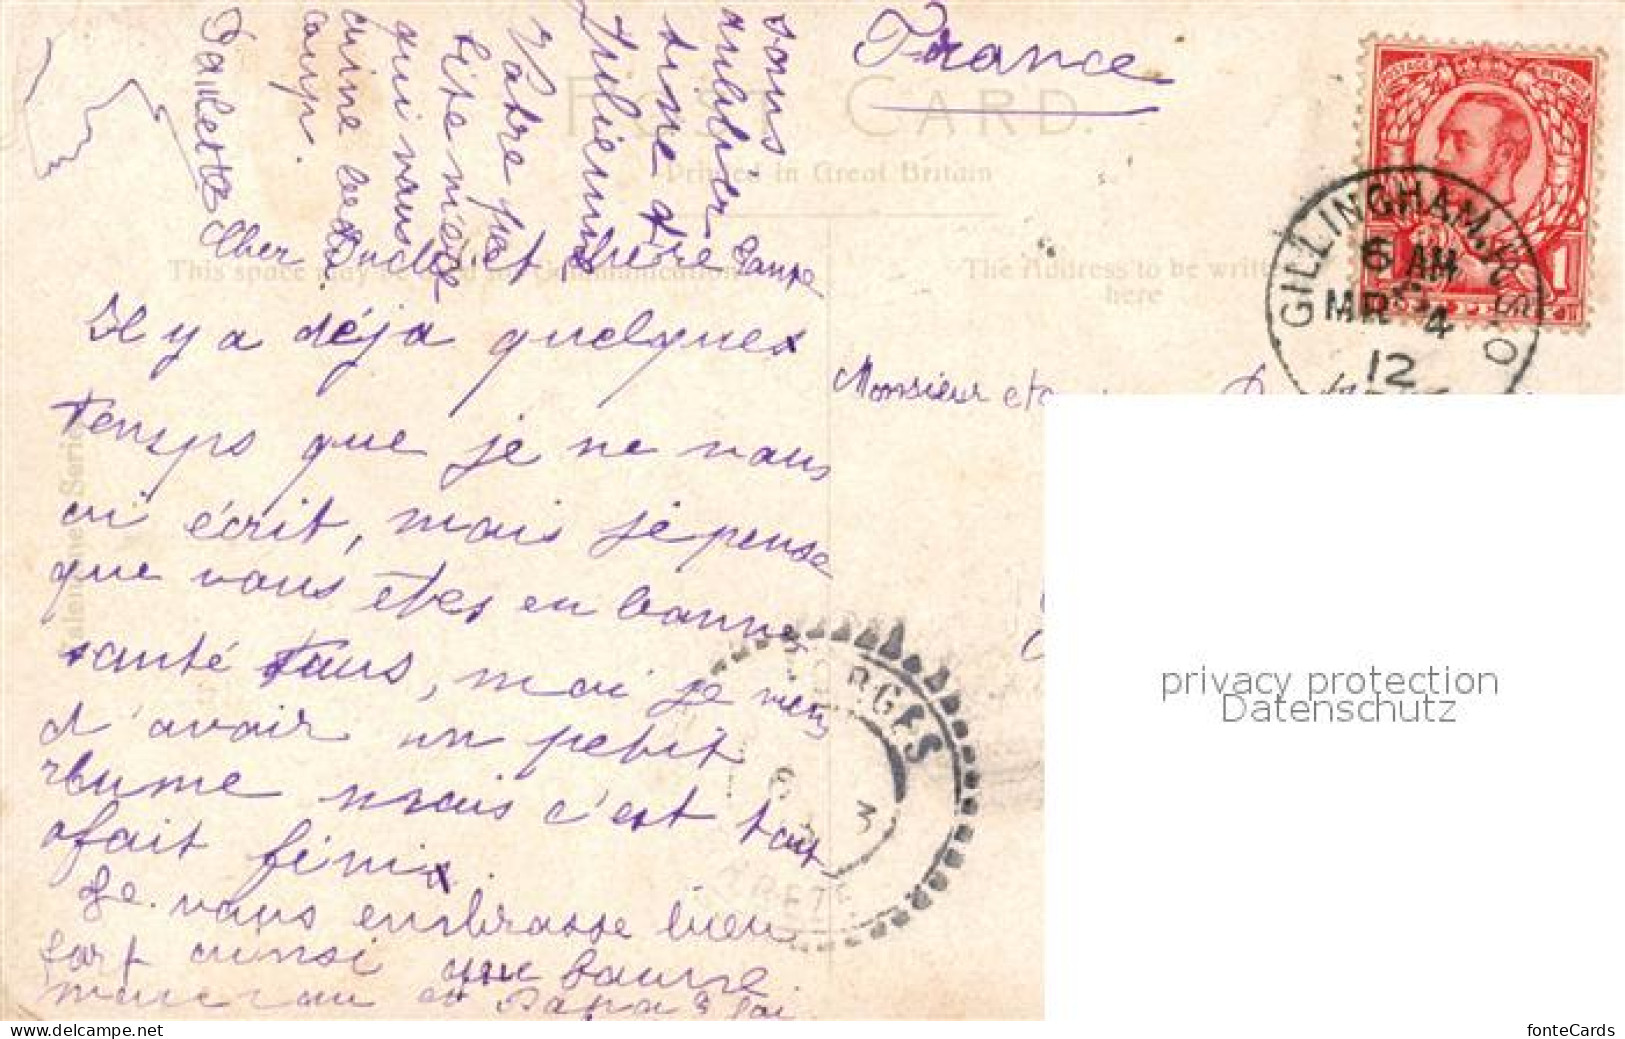 France
POST CARD.
Printed in Great Britain
This space may be used for Communications
The Address to be written
here
Valentine Series
POSTAGE REVENUE
1
GILLINGHAM. S.O
6 AM
MR 4
12
Monsieur et
Cher Oncle et chère Tante
Il y a déja quelques
temps que je ne vous
ai écrit, mais je pense
que vous êtes en bonne
santé tous, moi je viens
d'avoir un petit
rhume mais c'est tout
afait fini.
Je vous embrasse bien
fort ainsi que bonne
maman et Papa
sans
oublier
Julienne
Votre petite nièce
qui vous
aime beau
coup.
Paulette
ORGES
6 3
privacy protection
Datenschutz
fonteCards